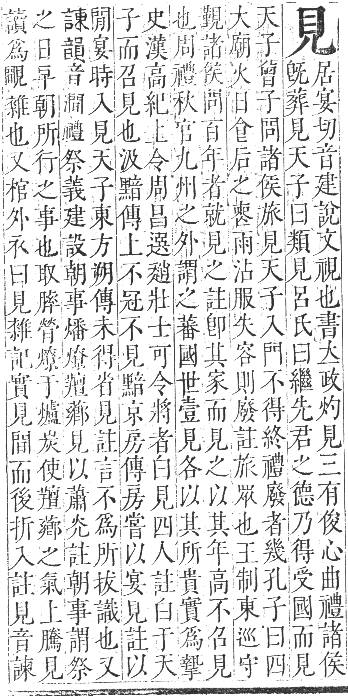 見居宴切音建說文視也書大政灼見三有俊心曲禮諸侯
旣葬見天子曰類見呂氏曰繼先君之德乃得受國而見
天子曾子問諸侯旅見天子入門不得終禮廢者幾孔子曰四
大廟火日食后之喪雨沾服失容則廢註旅眾也王制東巡守
覲諸侯問百年者就見之註卽其家而見之以其年高不召見
也周禮秋官九州之外謂之蕃國世壹見各以其所貴寶爲摯
史漢高紀上令周昌選趙壯士可令將者白見四人註白于天
子而召見也汲黯傳上不冠不見黯京房傳房嘗以宴見註以
閒宴時入見天子東方朔傳未得省見註言不爲所拔識也又
諫韻音澗禮祭義建設朝事燔燎羶薌見以蕭光註朝事謂祭
之日早朝所行之事也取膟膋燎于爐炭使羶薌之氣上騰見
讀爲覵雜也又棺外衣曰見雜記實見間而後折入註見音諫